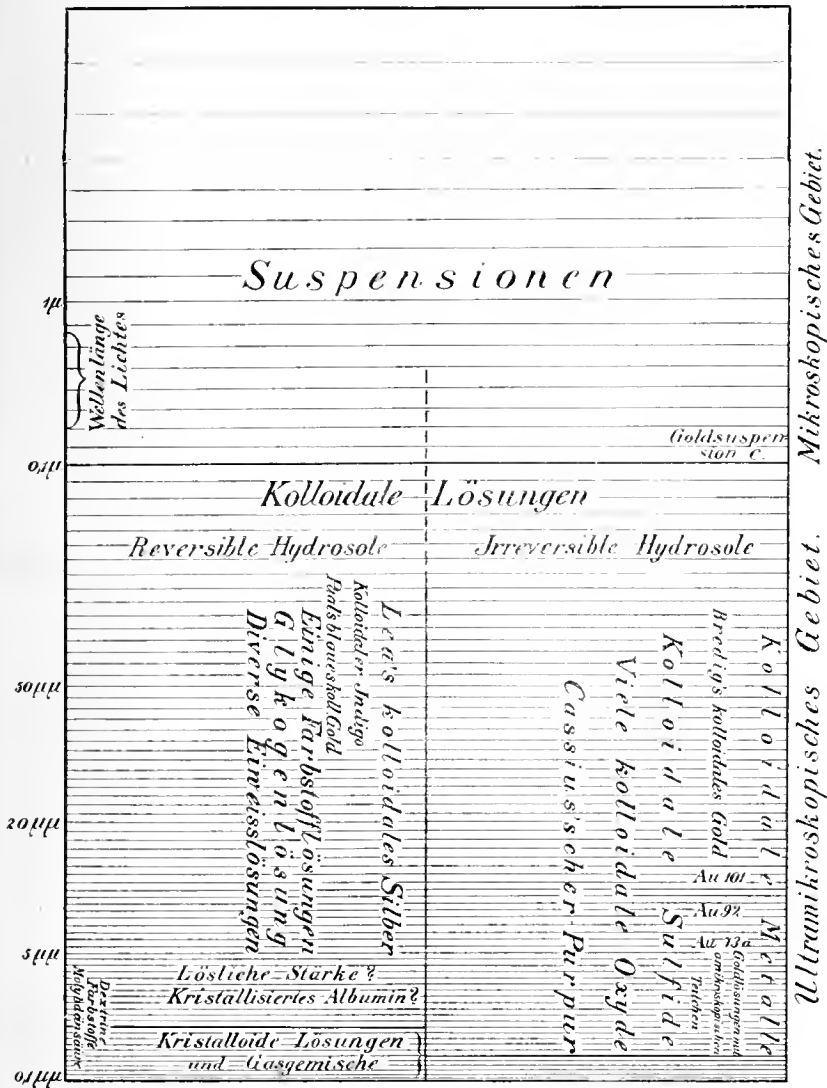 Mikroskopisches Gebiet.
Suspensionen
1μ
Wellenlänge
des Lichtes
Goldsuspen-
sion C.
0,1μ
Ultramikroskopisches Gebiet.
Kolloidale Lösungen
Reversible Hydrosole
Irreversible Hydrosole
Diverse Eiweisslösungen
Glykogenlösung
Einige Farbstofflösungen
Paalsblaueskoll.Gold
Kolloidaler Indigo
Lea's kolloidales Silber
Cassius'scher Purpur
Viele kolloidale Oxyde
Kolloidale Sulfide
Bredig's kolloidales Gold
Kolloidale Metalle
50μμ
20μμ
Au 101
Au 92
Au 73a
Goldlösungen mit
amikroskopischen
Teilchen
5μμ
Lösliche Stärke?
Kristallisiertes Albumin?
Dextrine
Farbstoffe
Molybdänsäure
Kristalloide Lösungen
und Gasgemische
0,1μμ